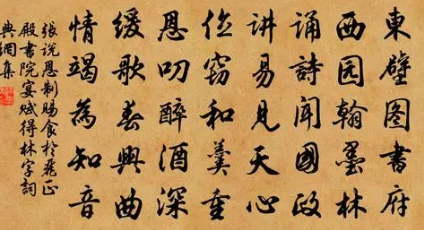 東壁图書府
西园翰墨林
誦詩聞國政
讲易見天心
位竊和羹重
恩叨醉酒深
缓歌春興曲
情竭為知音
張说恩制賜食於麗正
殿書院宴赋得林字詞
典網集